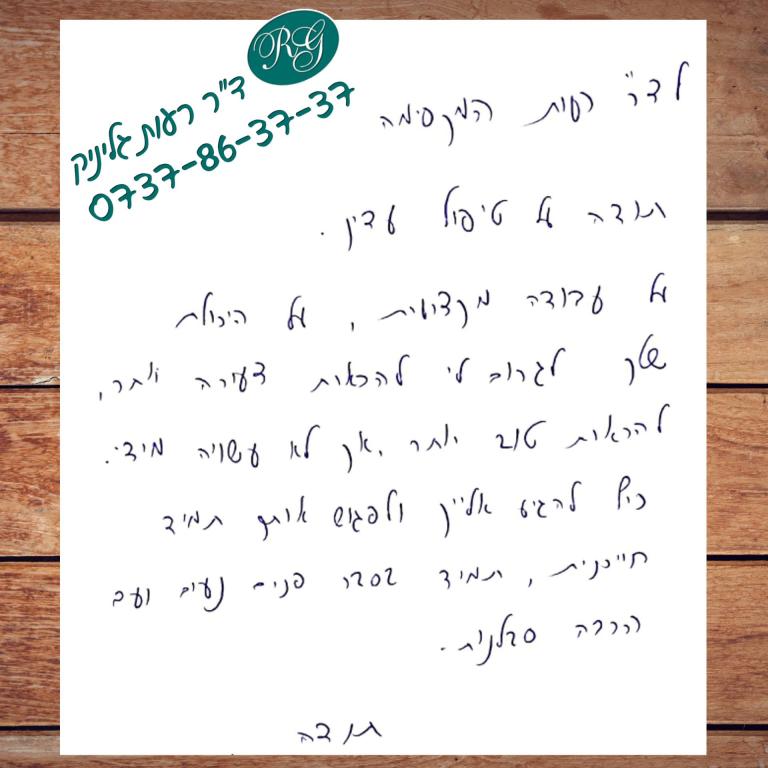 RG
ד"ר רעות גליניק
0737-86-37-37
לד"ר רעות המקסימה
תודה על טיפול עדין.
על עבודה מקצועית, על היכולת
שלך לגרום לי להראות צעירה יותר,
להראות טוב יותר, אך לא עשויה מידי.
כיף להגיע אלייך ולפגוש אותך תמיד
חייכנית, תמיד בסבר פנים נעים ועם
הרבה סבלנות.
תודה